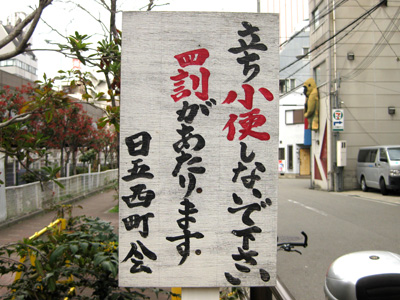 立ち小便しないで下さい
四罰があたります
日五西町会